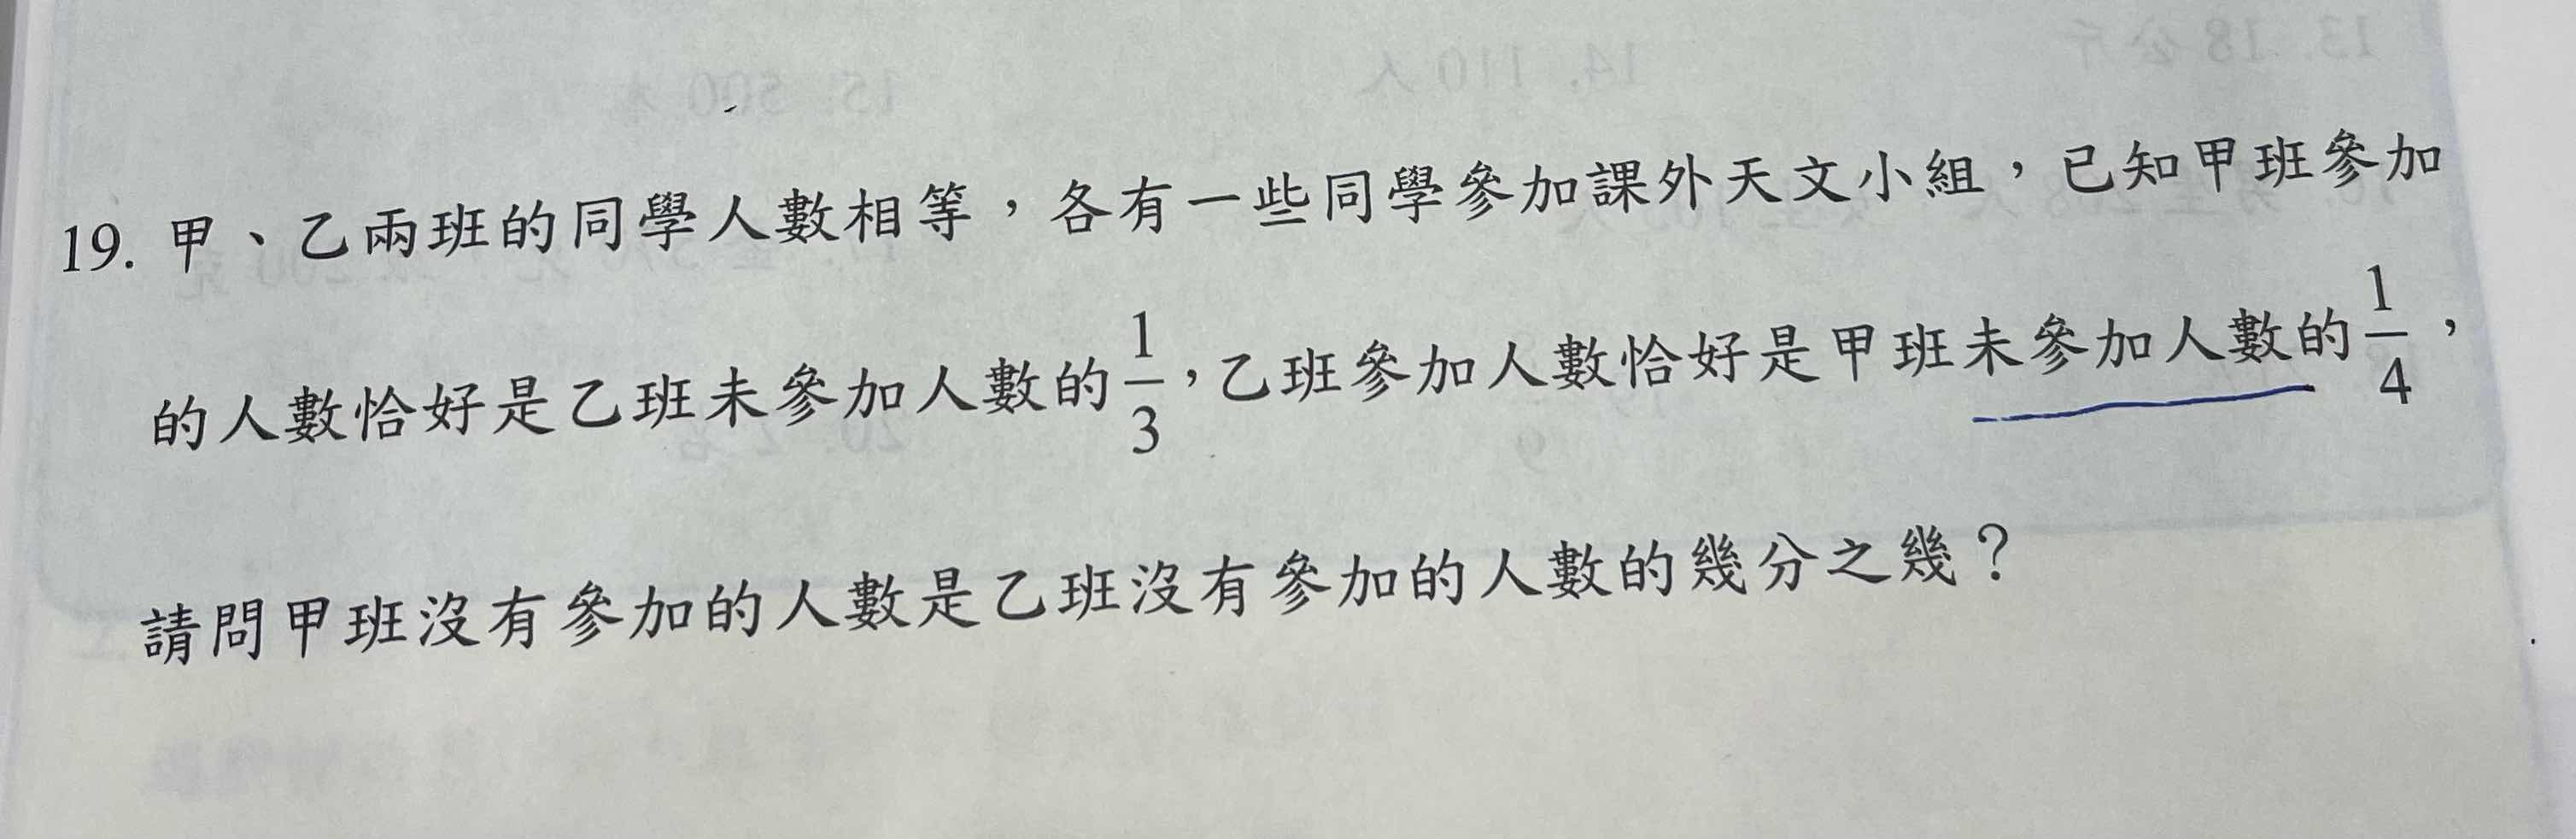 19. 甲、乙兩班的同學人數相等，各有一些同學參加課外天文小組，已知甲班參加
的人數恰好是乙班未參加人數的1/3，乙班參加人數恰好是甲班未參加人數的1/4，
請問甲班沒有參加的人數是乙班沒有參加的人數的幾分之幾？